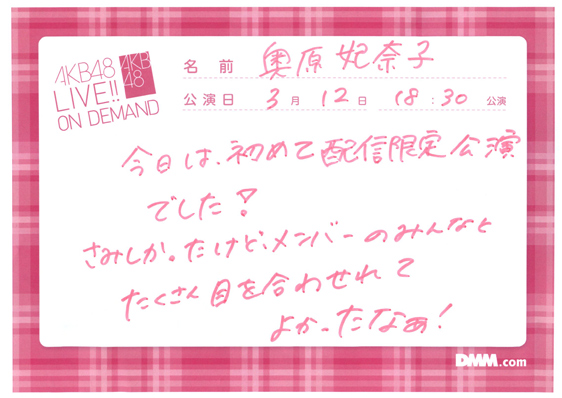 AKB48
LIVE!!
ON DEMAND
AKB
48
名前 奥原妃奈子
公演日 3月12日 18:30 公演
今日は、初めて配信限定公演
でした!
さみしかったけど、メンバーのみんなと
たくさん目を合わせれて
よかったなぁ!
DMM.com